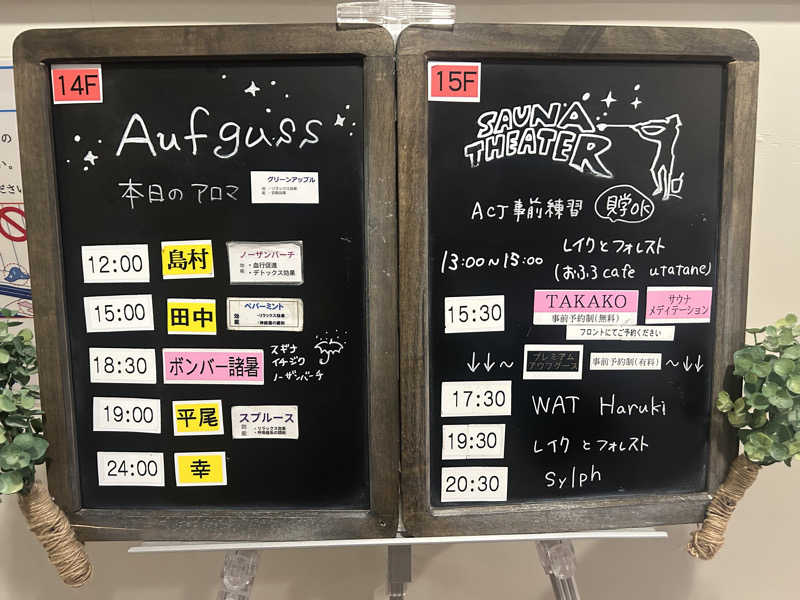 14F
Aufguss
本日のアロマ
グリーンアップル
12:00 島村 ノーザンバーチ
・血行促進
・デトックス効果
15:00 田中 ペパーミント
・リラックス効果
18:30 ボンバー諸暑 スギナ
イチジク
ノーザンバーチ
19:00 平尾 スプルース
・リラックス効果
24:00 幸
15F
SAUNA
THEATER
ACJ事前練習 見学OK
13:00~15:00 レイクとフォレスト
(おふろcafe utatane)
15:30 TAKAKO サウナ
メディテーション
事前予約制(無料)
フロントにてご予約ください
↓↓~ プレミアム
アウフグース 事前予約制(有料) ~↓↓
17:30 WAT Haruki
19:30 レイクとフォレスト
20:30 Sylph